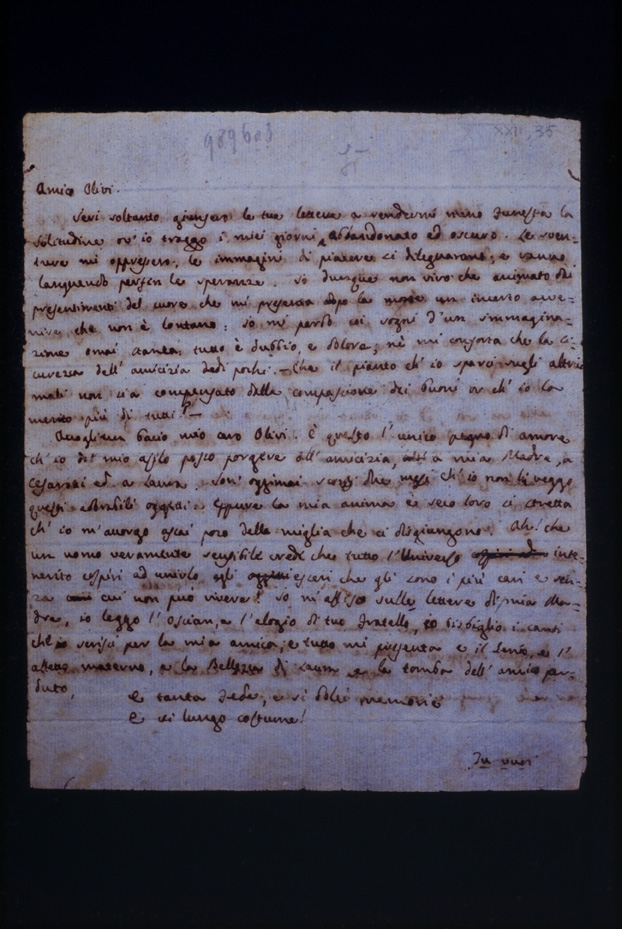 989603
XXII, 35
Amico Olivi.
Jeri soltanto giunsero le tue lettere a rendermi meno funesta la
solitudine ov'io traggo i miei giorni abbandonato ed oscuro. Le sven-
ture mi oppressero, le immagini di piacere si dileguarono, e vanno
languendo persin le speranze. Io dunque non vivo che animato da'
presentimenti del cuore che mi presenta dopo la morte un incerto avve-
nire che non è lontano: io mi perdo coi sogni d'un immagina-
zione omai stanca, tutto è dubbio, e dolore, nè mi conforta che la si-
curezza dell'amicizia de' pochi. — Che il pianto ch'io sparsi sugli altrui
mali non sia compensato dalla compassione dei buoni or ch'io la
merito più di tutti? —
Accogli un bacio mio caro Olivi. È questo l'unico pegno di amore
ch'io dal mio asilo posso porgere all'amicizia, a mia Madre, a
Cesarotti ed a Laura. Sono oggimai scorsi due mesi ch'io non li veggo
questi adorabili oggetti. Eppure la mia anima è seco loro sì stretta
ch'io m'accorgo assai poco delle miglia che ci disgiungono. Ah! che
un uomo veramente sensibile crede che tutto l'Universo inte-
nerito cospiri ad unirlo agli esseri che gli sono i più cari e sen-
za cui non può vivere! Io m'affiso sulle lettere di mia Ma-
dre, io leggo l'Ossian, e l'elogio di tuo fratello, io bisbiglio i canti
che io scrissi per la mia amica, e tutto mi presenta e il Genio, e l'
affetto materno, e la Bellezza di Laura e la tomba dell'amico per-
duto,
E tanta fede, e sì dolci memorie
E sì lungo costume!